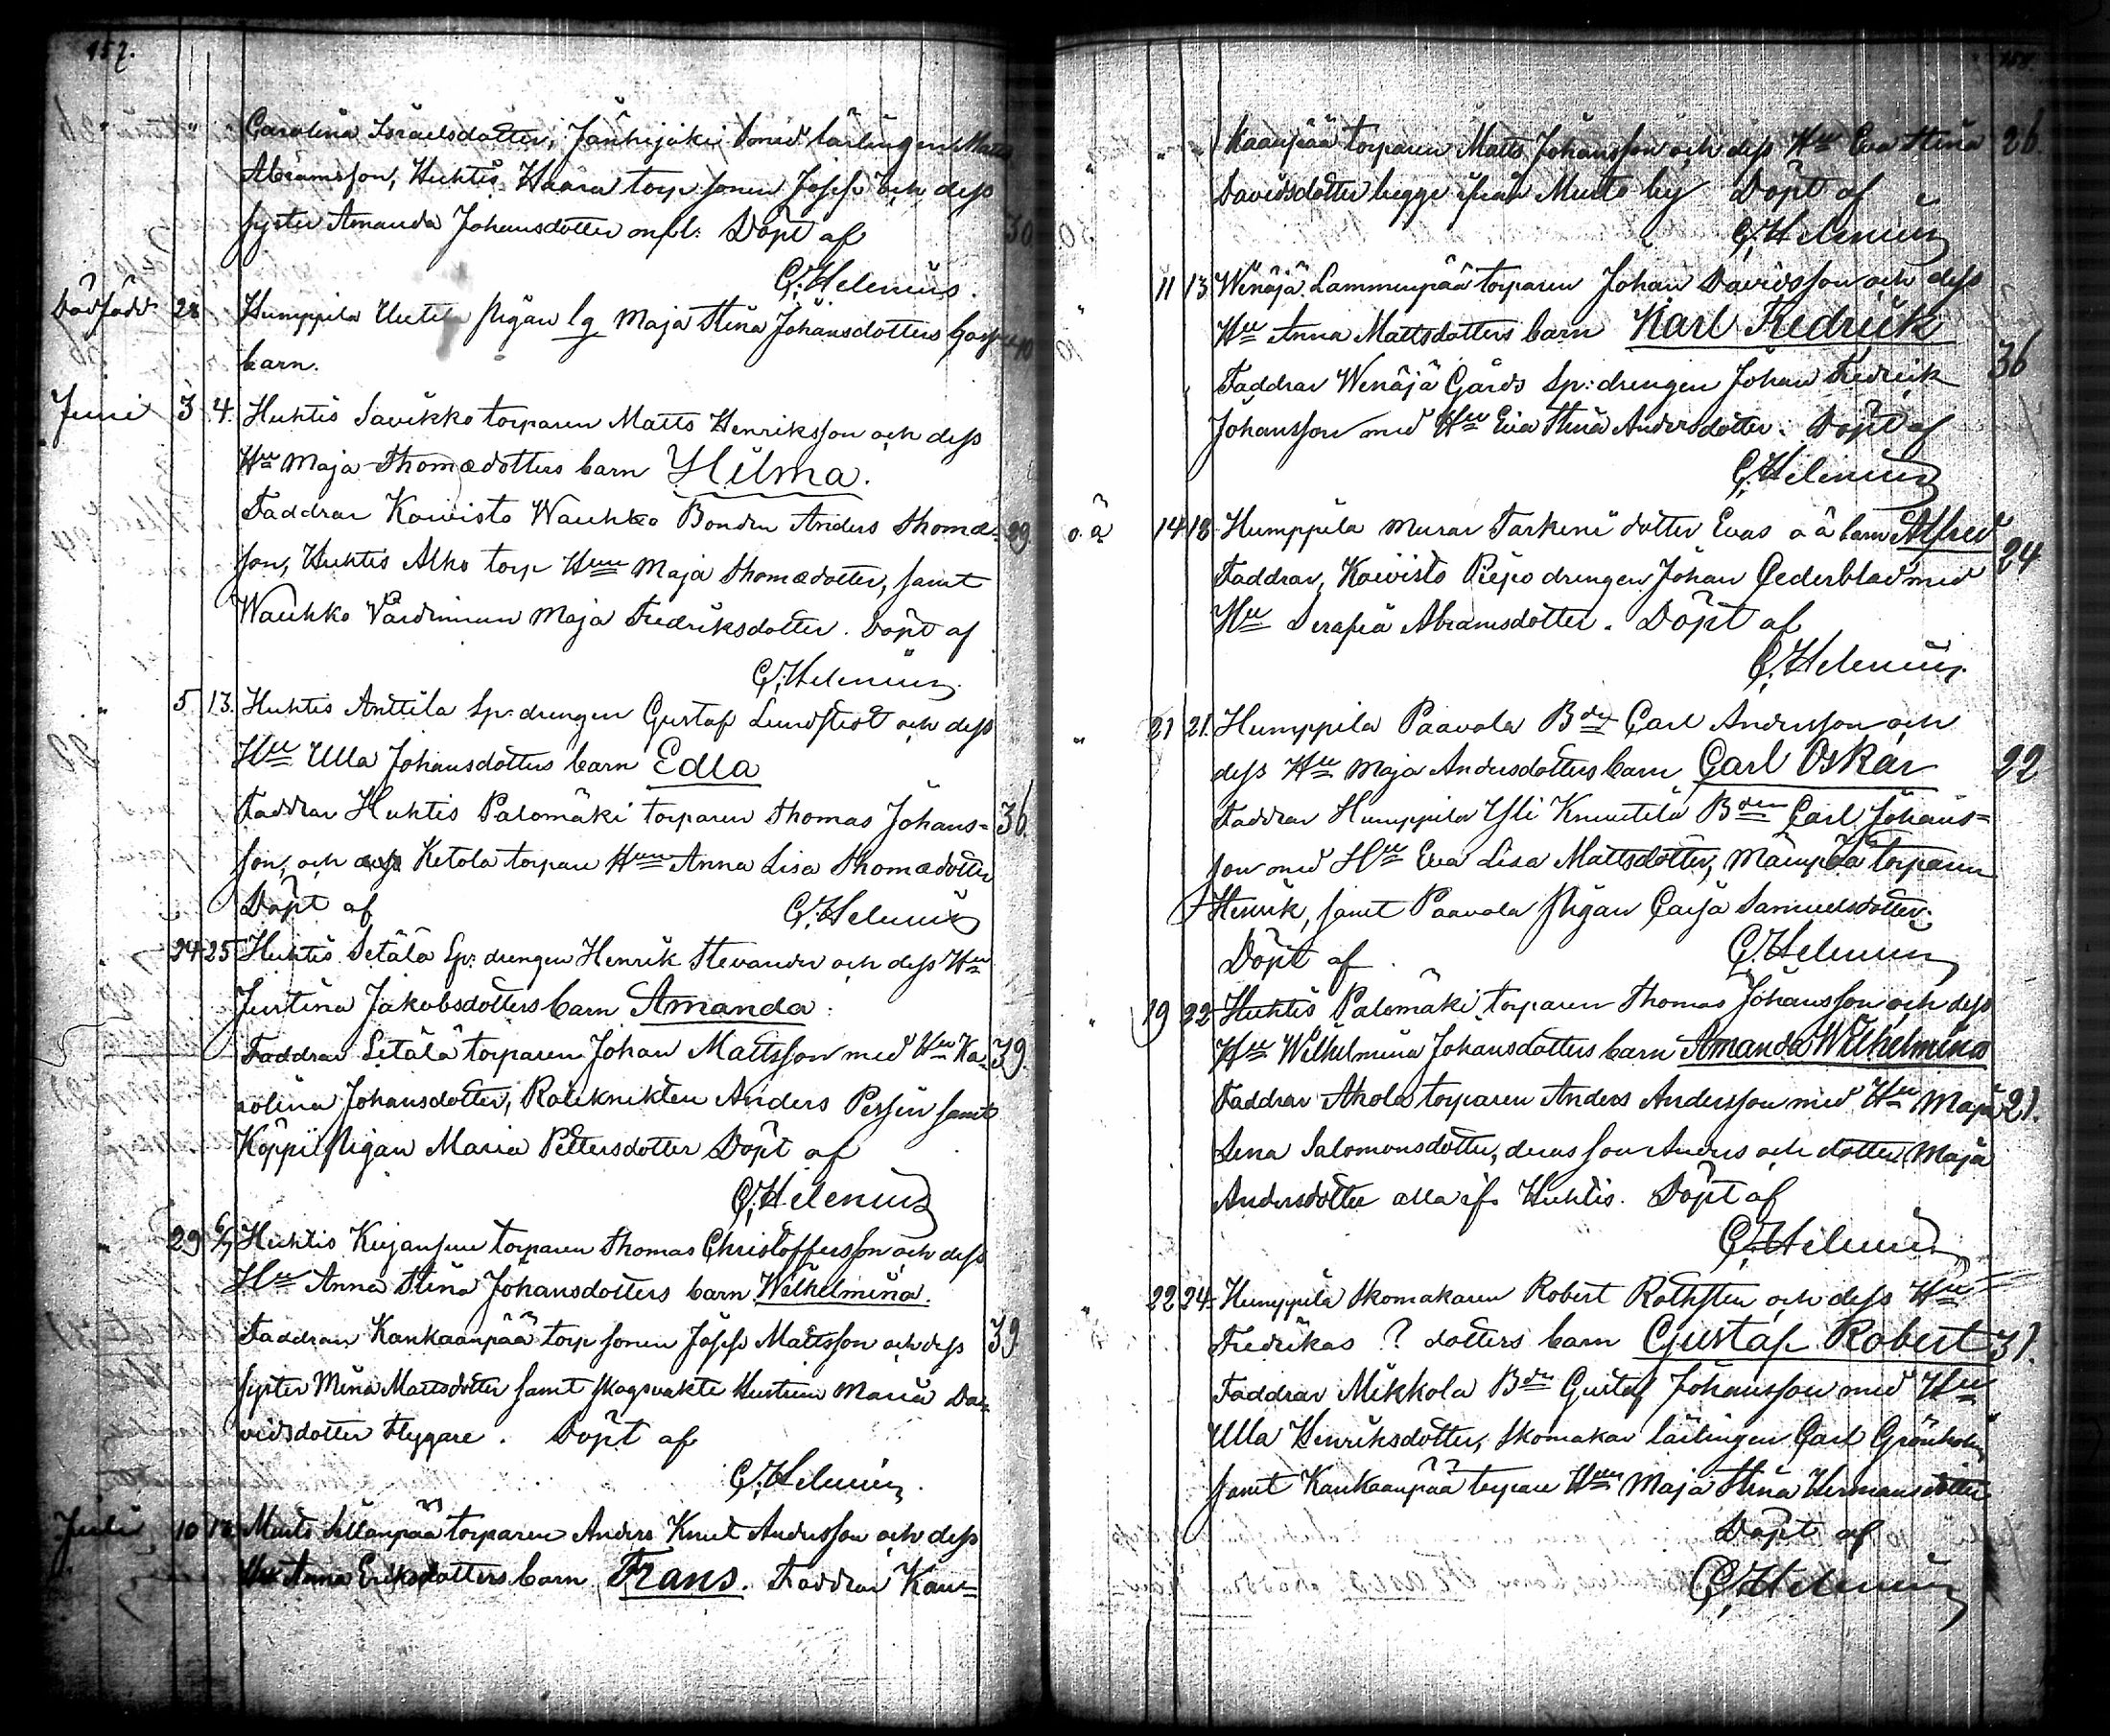 157.
" " " Carolina Israelsdotter, Jänhijoki smed lärlingen Matts
Abramsson, Huhtis Haara torp sonen Josef och dess
syster Amanda Johansdotter Döpt af 30
G. Helenius.
Dödfödd 28 Humppila Uutela pigan lg Maja Stina Johansdotters goss 40
barn.
Juni 3 4. Huhtis Savikko torparen Matts Henriksson och dess
Hu Maja Thomædotters barn Hilma.
Faddrar Koivisto Wauhko Bonden Anders Thomæ= 29
son, Huhtis Alho torp Hun Maja Thomædotter, samt
Wauhko Värdinnan Maja Fredriksdotter. Döpt af
G. Helenius
" 5 13. Huhtis Anttila Sp: drengen Gustaf Lundqvist och dess
Hu Ulla Johansdotters barn Edla
Faddrar Huhtis Palomäki torparen Thomas Johans= 36.
son, och Ketola torpare Hun Anna Lisa Thomædotter
Döpt af G. Helenius
" 24 25 Huhtis Setälä Sp: drengen Henrik Stevander och dess Hu
Justina Jakobsdotters barn Amanda.
Faddrar Setälä torparen Johan Mattsson med Hu Ka= 39.
rolina Johansdotter, Roteknikten Anders Persin samt
Köppi pigan Maria Pettersdotter Döpt af
G. Helenius
" 29 6/7 Huhtis Kujanpuu torparen Thomas Christoffersson och dess
Hu Anna Stina Johansdotters barn Wilhelmina.
Faddrar Kankaanpää torp sonen Josef Mattsson och dess 39
syster Mina Mattsdotter samt skogsvakte Hustrun Maria Da=
vidsdotter Flyggare. Döpt af
G. Helenius
Juli 10 12 Murto Sillanpää torparen Anders Knut Andersson och dess
Hu Anna Eriksdotters barn Frans. Faddrar Kan=
158.
" " " kaanpää torparen Matts Johansson och dess Hu Eva Stina 26.
Davidsdotter begge ifrån Murto by Döpt af
G. Helenius
" 11 13 Wenäjä Lammenpää torparen Johan Davidsson och dess
Hu Anna Mattsdotters barn Karl Fredrik
Faddrar Wenäjä Gårds Sp: drengen Johan Fredrik 36
Johansson med Hu Eva Stina Andersdotter. Döpt af
G. Helenius
o. ä 14 18 Humppila murar Tarkeni dotter Evas o ä barn Alfred
Faddrar, Koivisto Piepo drengen Johan Cederblad med 24
Hu Serafia Abramsdotter. Döpt af
G. Helenius
" 21 21. Humppila Paavola Bdn Carl Andersson och
dess Hu Maja Andersdotters barn Carl Oskar 22
Faddrar Humppila Yli Knuutila Bden Carl Johans=
son med Hu Eva Lisa Mattsdotter, Mämpää torparen
Henrik, samt Paavola pigan Caisa Samuelsdotter.
Döpt af G. Helenius
" 19 22 Huhtis Palomäki torparen Thomas Johansson och dess
Hu Wilhelmina Johansdotters barn Amanda Wilhelmina
Faddrar Ahola torparen Anders Andersson med Hu Maja 21.
Lena Salomonsdotter, deras son Anders och dotter Maja
Andersdotter alla ifr. Huhtis. Döpt af
G. Helenius
" 22 24 Humppila Skomakaren Robert Rothsten och dess Hu
Fredrikas ? dotters barn Gustaf Robert 31.
Faddrar Mikkola Bdn Gustaf Johansson med Hu
Ulla Henriksdotter, Skomakar lärlingen Carl Grönholm
samt Kankaanpää torpare Hun Maja Stina Hermansdotter
Döpt af
G. Helenius